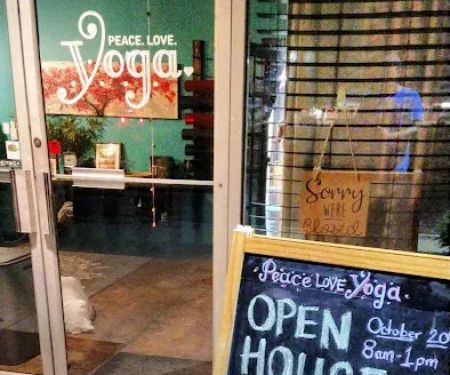 PEACE. LOVE.
yoga.
Sorry
WE'RE
Closed
Peace LOVE Yoga.
OPEN
October 20
8am-1pm